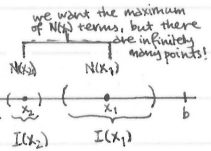 we want the maximum
of N(x_j) terms, but there
are infinitely
many points!
N(x_2) N(x_1)
x_2 x_1 b
I(x_2) I(x_1)